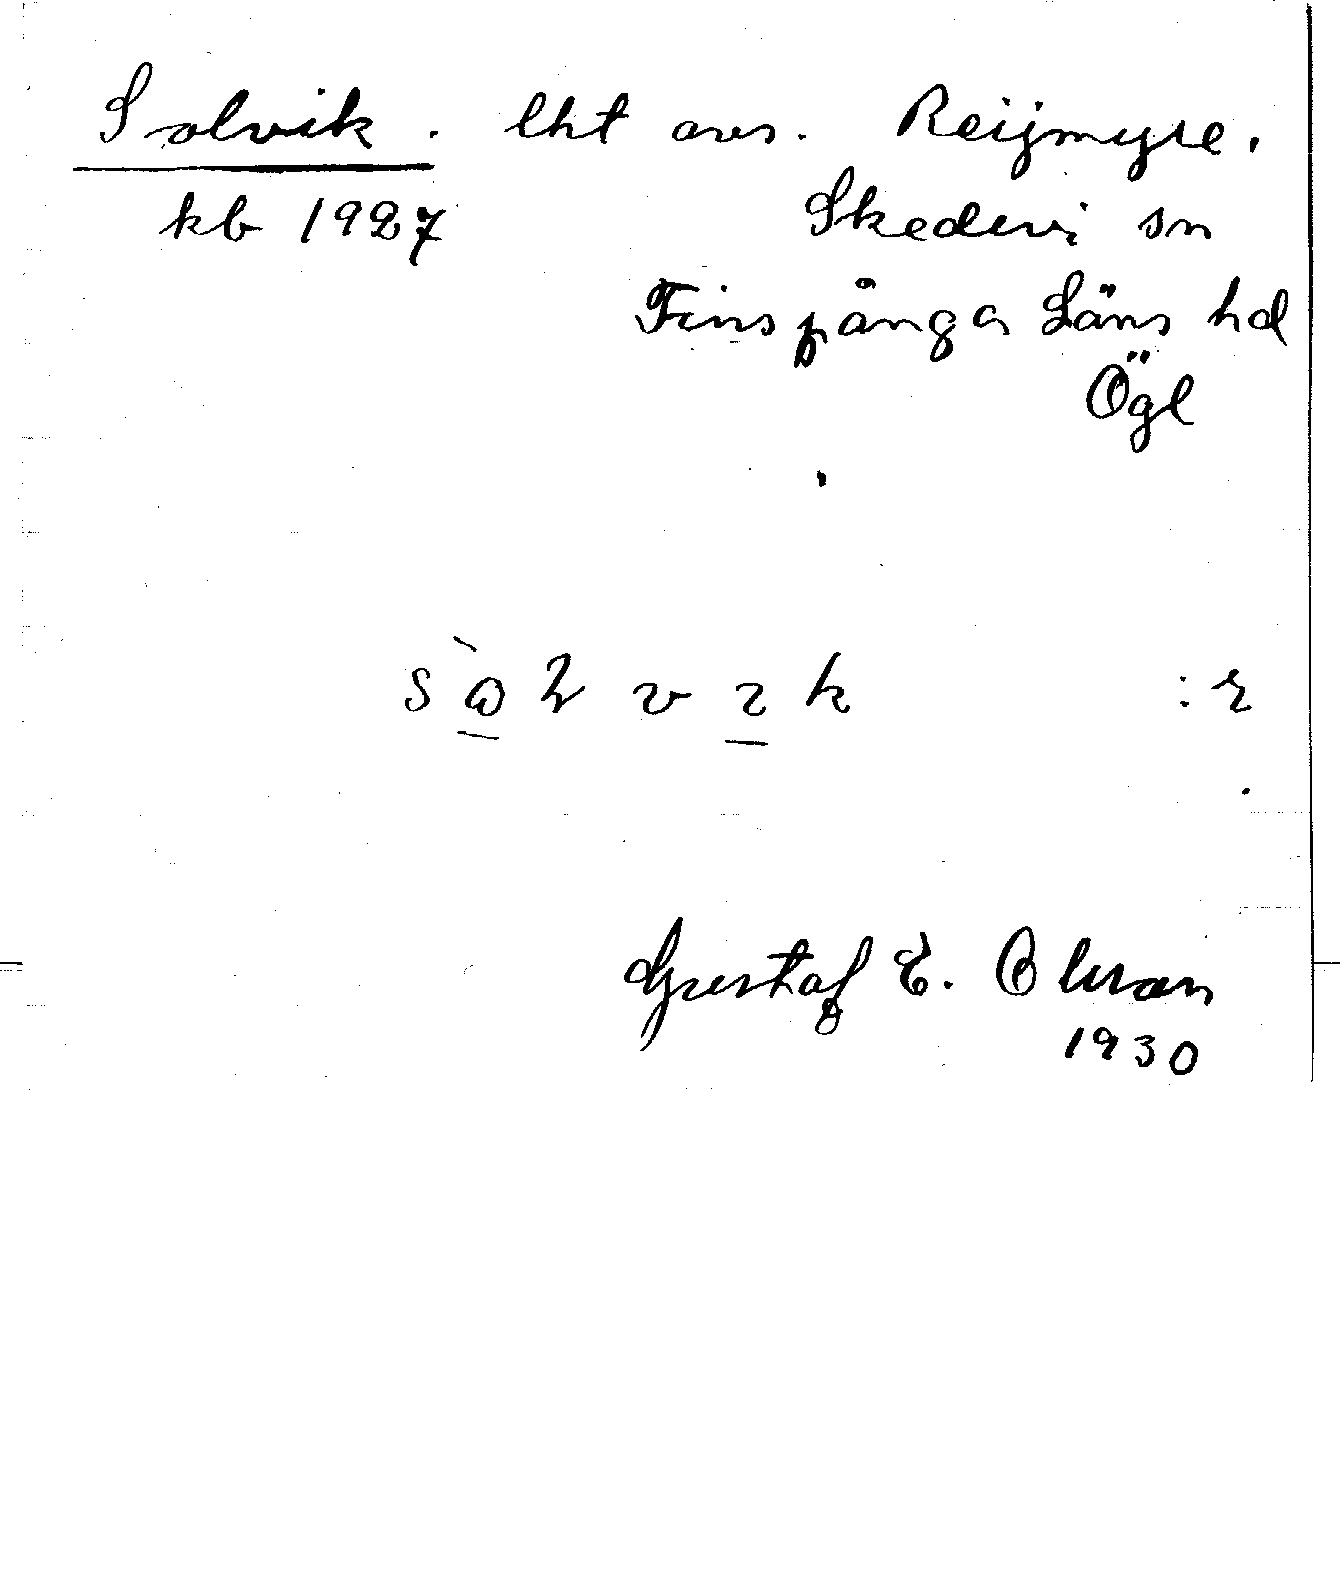 Solvik. lht avs. Reijmyre.
kb 1927 Skedevi sn
Finspånga Läns hd
Ögl
:r
Gustaf E. Olman
1930